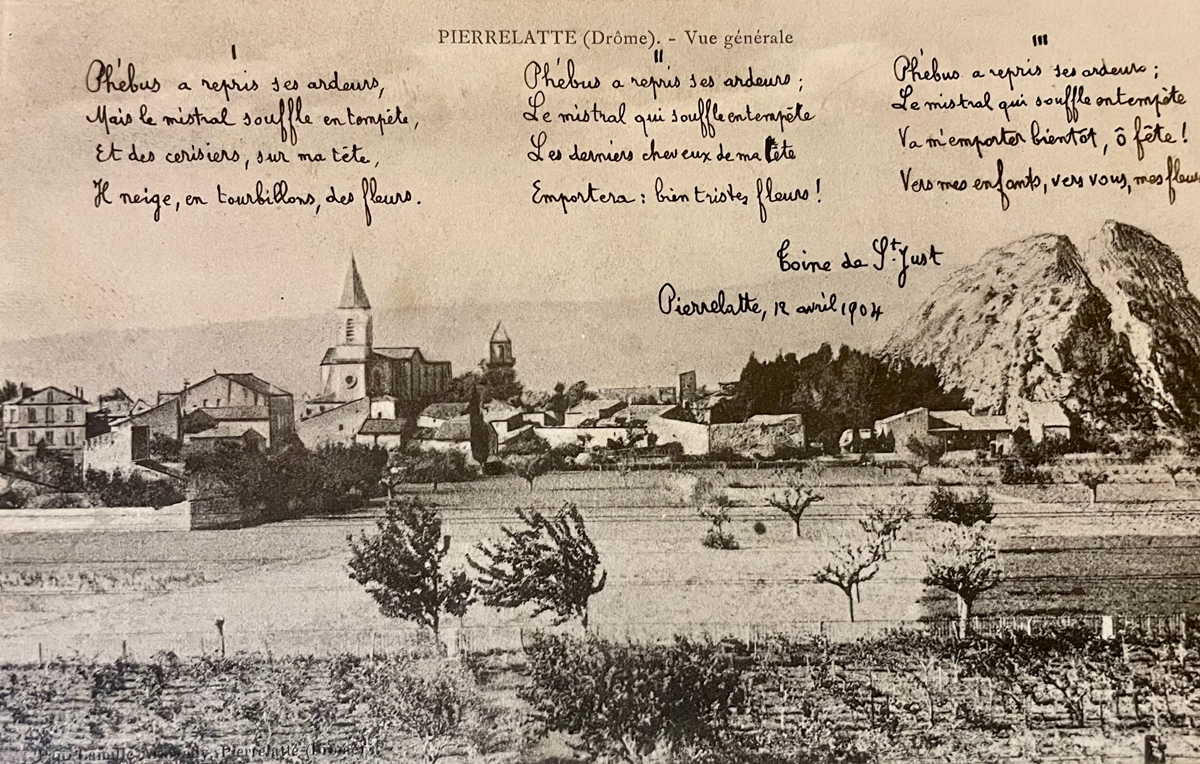 PIERRELATTE (Drôme). - Vue générale
I
Phébus a repris ses ardeurs,
Mais le mistral souffle en tempête,
Et des cerisiers, sur ma tête,
Il neige, en tourbillons, des fleurs.
II
Phébus a repris ses ardeurs ;
Le mistral qui souffle en tempête
Les derniers cheveux de ma tête
Emportera : bien tristes fleurs !
III
Phébus a repris ses ardeurs ;
Le mistral qui souffle en tempête
Va m'emporter bientôt, ô fête !
Vers mes enfants, vers vous, mes fleurs
Toine de St. Just
Pierrelatte, 12 avril 1904
Pierrelatte (Drôme)